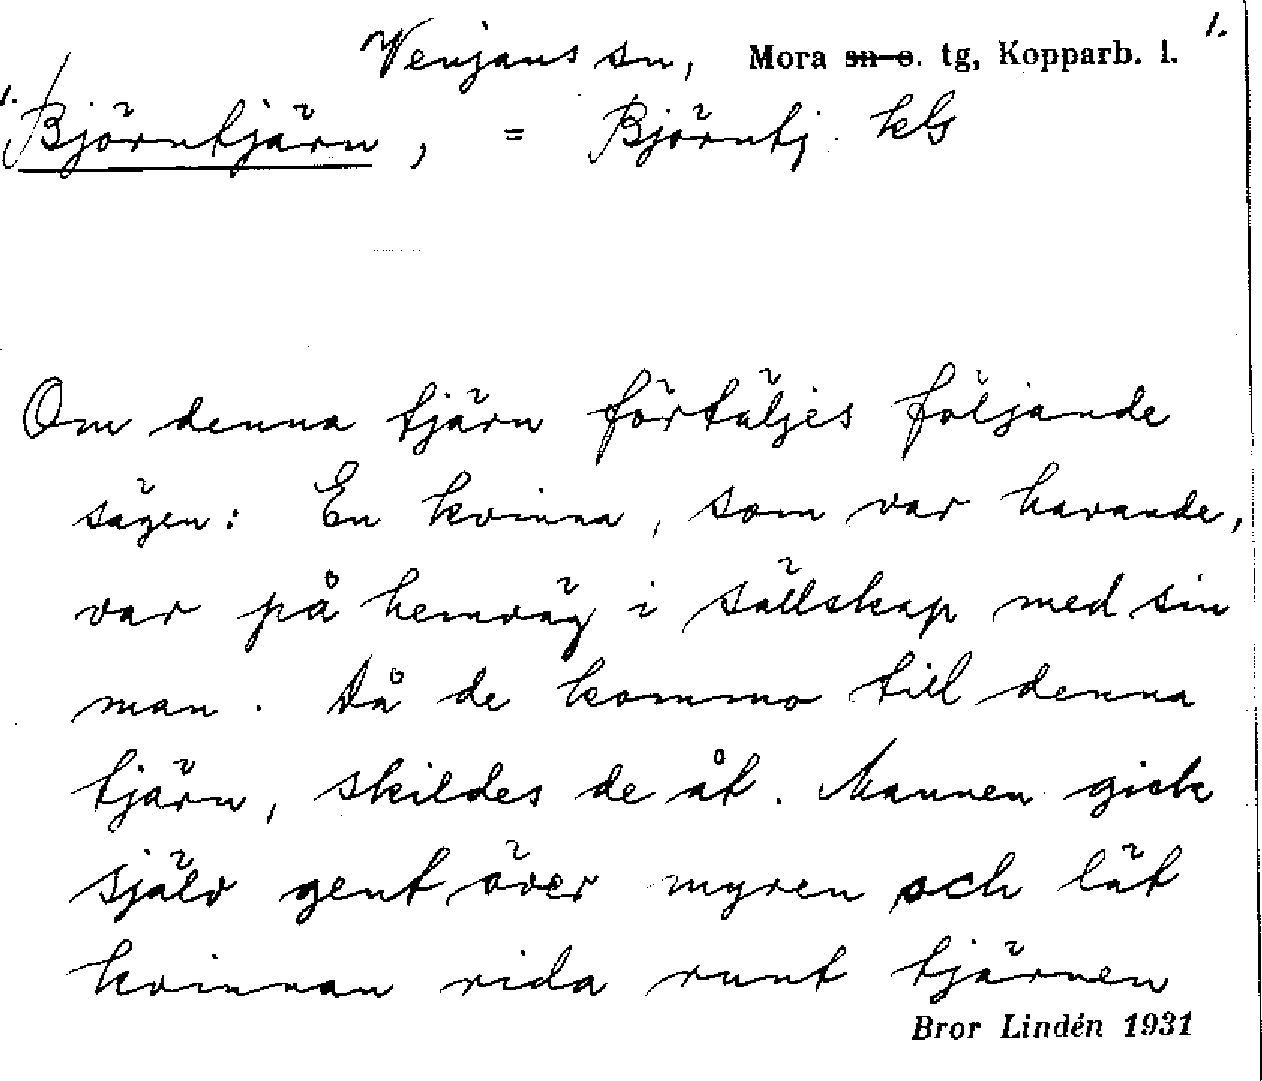 Venjans sn, Mora sn o. tg, Kopparb. l. 1.
1. Björntjärn, = Björntj. kG
Om denna tjärn förtäljes följande
sägen: En kvinna, som var havande,
var på hemväg i sällskap med sin
man. Då de kommo till denna
tjärn, skildes de åt. Mannen gick
själv gent över myren och lät
kvinnan rida runt tjärnen
Bror Lindén 1931